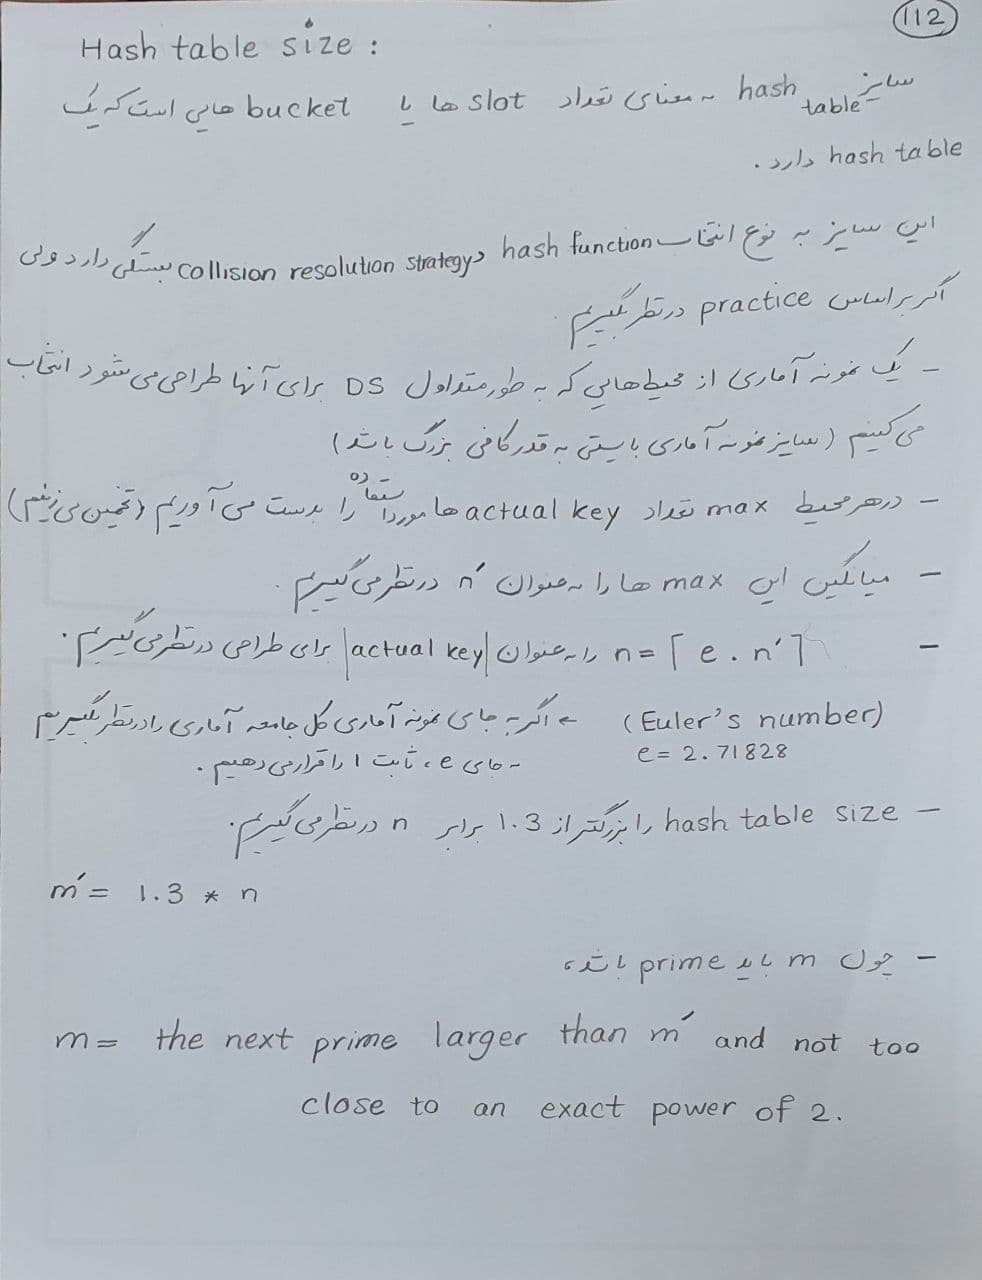 112
Hash table size :
سایز hash table به معنای تعداد slot ها یا bucket هایی است که یک
hash table دارد.
این سایز به نوع انتخاب hash function و collision resolution strategy بستگی دارد ولی
اگر بر اساس practice در نظر بگیریم
- یک نمونه آماری از محیط‌هایی که به طور متداول DS برای آنها طراحی می‌شود انتخاب
می‌کنیم (سایز نمونه آماری بایستی به قدر کافی بزرگ باشد)
- در هر محیط max تعداد actual key ها مورد استفاده را بدست می‌آوریم (تخمین می‌زنیم)
- میانگین این max ها را به عنوان n′ در نظر می‌گیریم.
- n = ⌈e . n′⌉ را به عنوان |actual key| برای طراحی در نظر می‌گیریم.
(Euler's number) ← اگر به جای نمونه آماری کل جامعه آماری را در نظر بگیریم
e = 2.71828 به جای e، ثابت 1 را قرار می‌دهیم.
- hash table size را بزرگتر از 1.3 برابر n در نظر می‌گیریم.
m′ = 1.3 * n
- چون m باید prime باشد،
m = the next prime larger than m′ and not too
close to an exact power of 2.